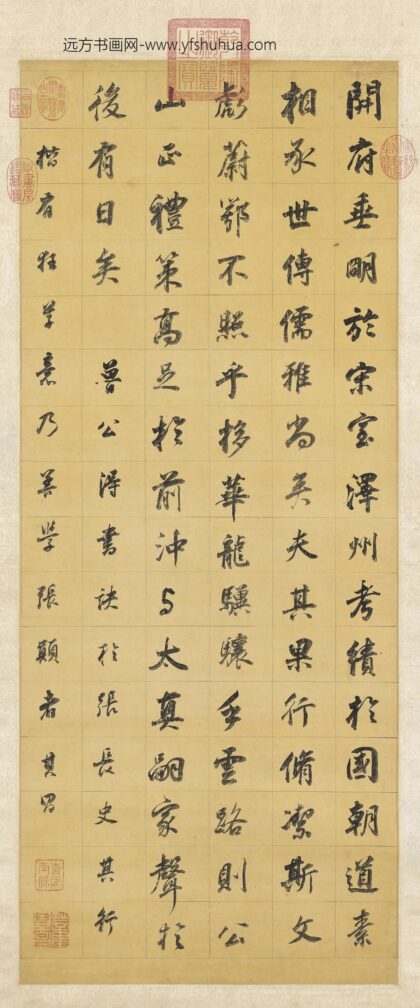 远方书画网-www.yfshuhua.com
乾隆御覽之寶
開府垂明於宋室澤州考績於國朝道素
相承世傳儒雅尚矣夫其果行脩潔斯文
彪蔚鄂不照乎栘華龍驥驤乎雲路則公
山正禮策高足於前沖与太真嗣家聲於
後有日矣 魯公得書訣於張長史其行
楷有狂草意乃善學張顛者其昌